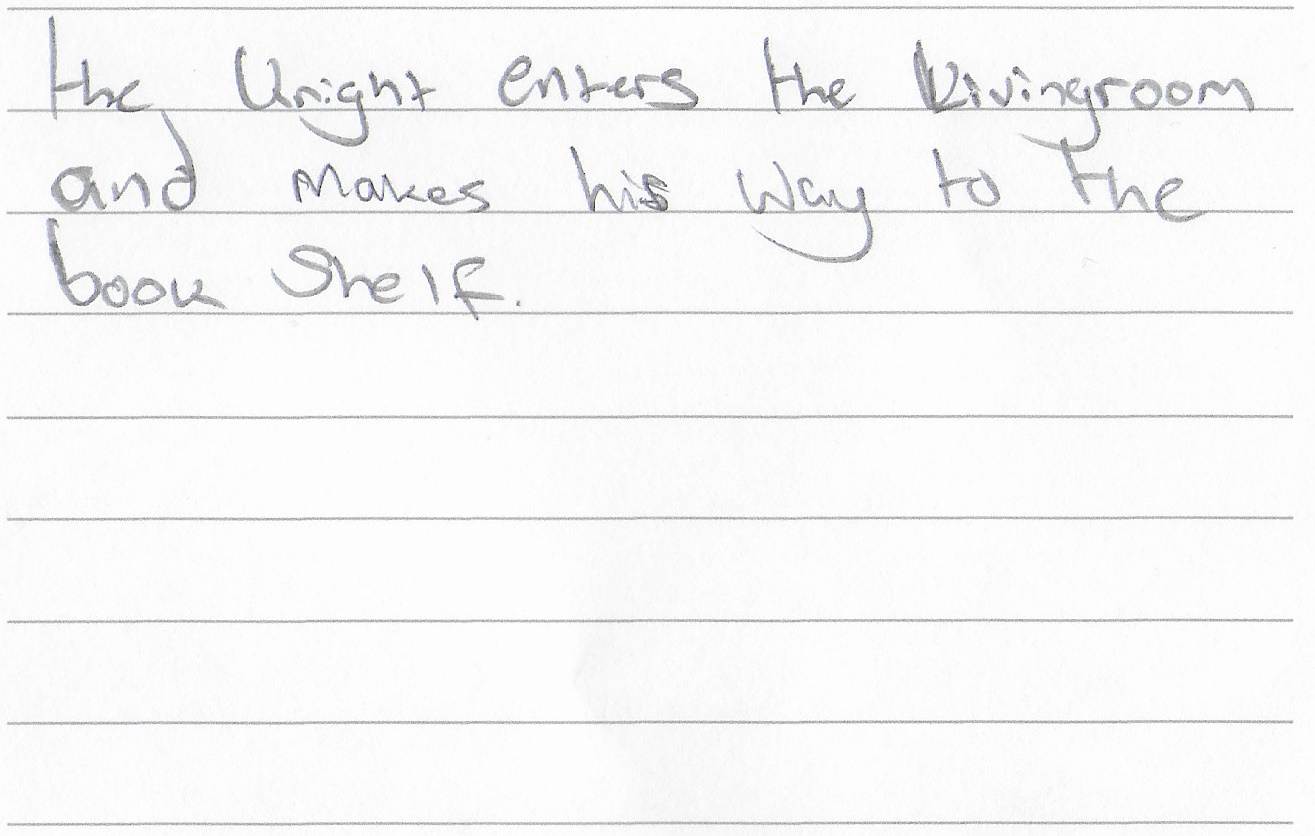 the Knight enters the Livingroom
and makes his way to the
book Shelf.